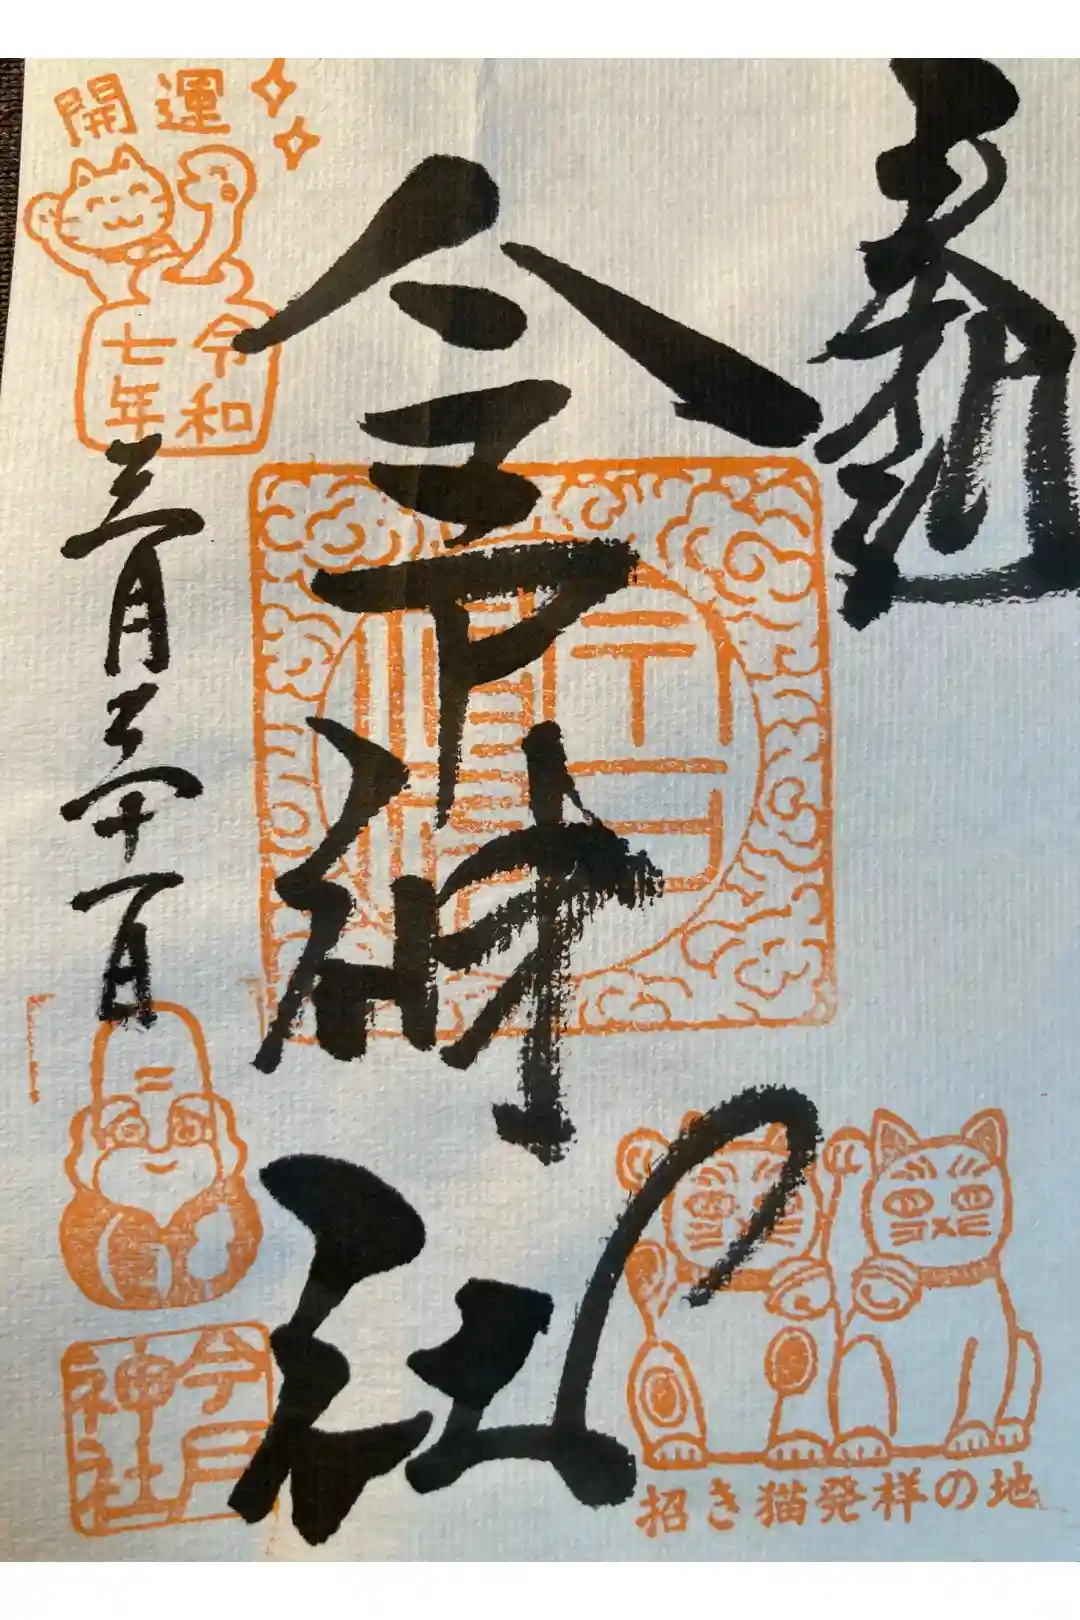 奉拝
今戸神社
開運
令和
七年
三月三十一日
今戸
神社
招き猫発祥の地